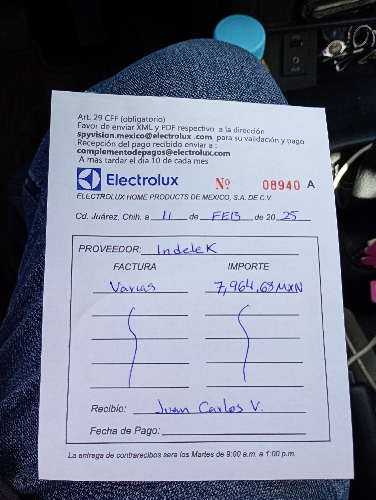 Art. 29 CFF (obligatorio)
Favor de enviar XML y PDF respectivo a la dirección
spyvision.mexico@electrolux .com para su validación y pago
Recepción del pago recibido enviar a :
complementodepagos@electrolux.com
A mas tardar el día 10 de cada mes
Electrolux Nº 08940 A
ELECTROLUX HOME PRODUCTS DE MEXICO, S.A. DE C.V.
Cd. Juárez, Chih. a 11 de FEB de 20 25
PROVEEDOR: Indelek
FACTURA IMPORTE
Varias 7,964.68 MXN
Recibio: Juan Carlos V.
Fecha de Pago:
La entrega de contrarecibos sera los Martes de 9:00 a.m. a 1:00 p.m.